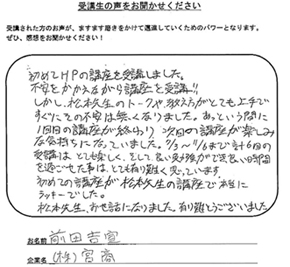 受講生の声をお聞かせください
受講された方のお声が、ますます磨きをかけて邁進していくためのパワーとなります。
ぜひ、感想をお聞かせください！
初めてHPの講座を受講しました。
不安をかかえながら講座を受講!!
しかし、松本先生のトークや、教え方がとても上手で
すぐにその不安は無くなりました。あっという間に
1回目の講座が終わり 次回の講座が楽しみ
な気持ちになっていました。9/3〜11/6まで計6回の
受講は、とても楽しく、そして、良い受講ができ良い時間
を過ごせた事は、とても有り難く思っています。
初めての講座が松本先生の講座で本当に
ラッキーでした。
松本先生、お世話になりました。有り難うございました
お名前 前田吉宣
企業名 (株)宮商